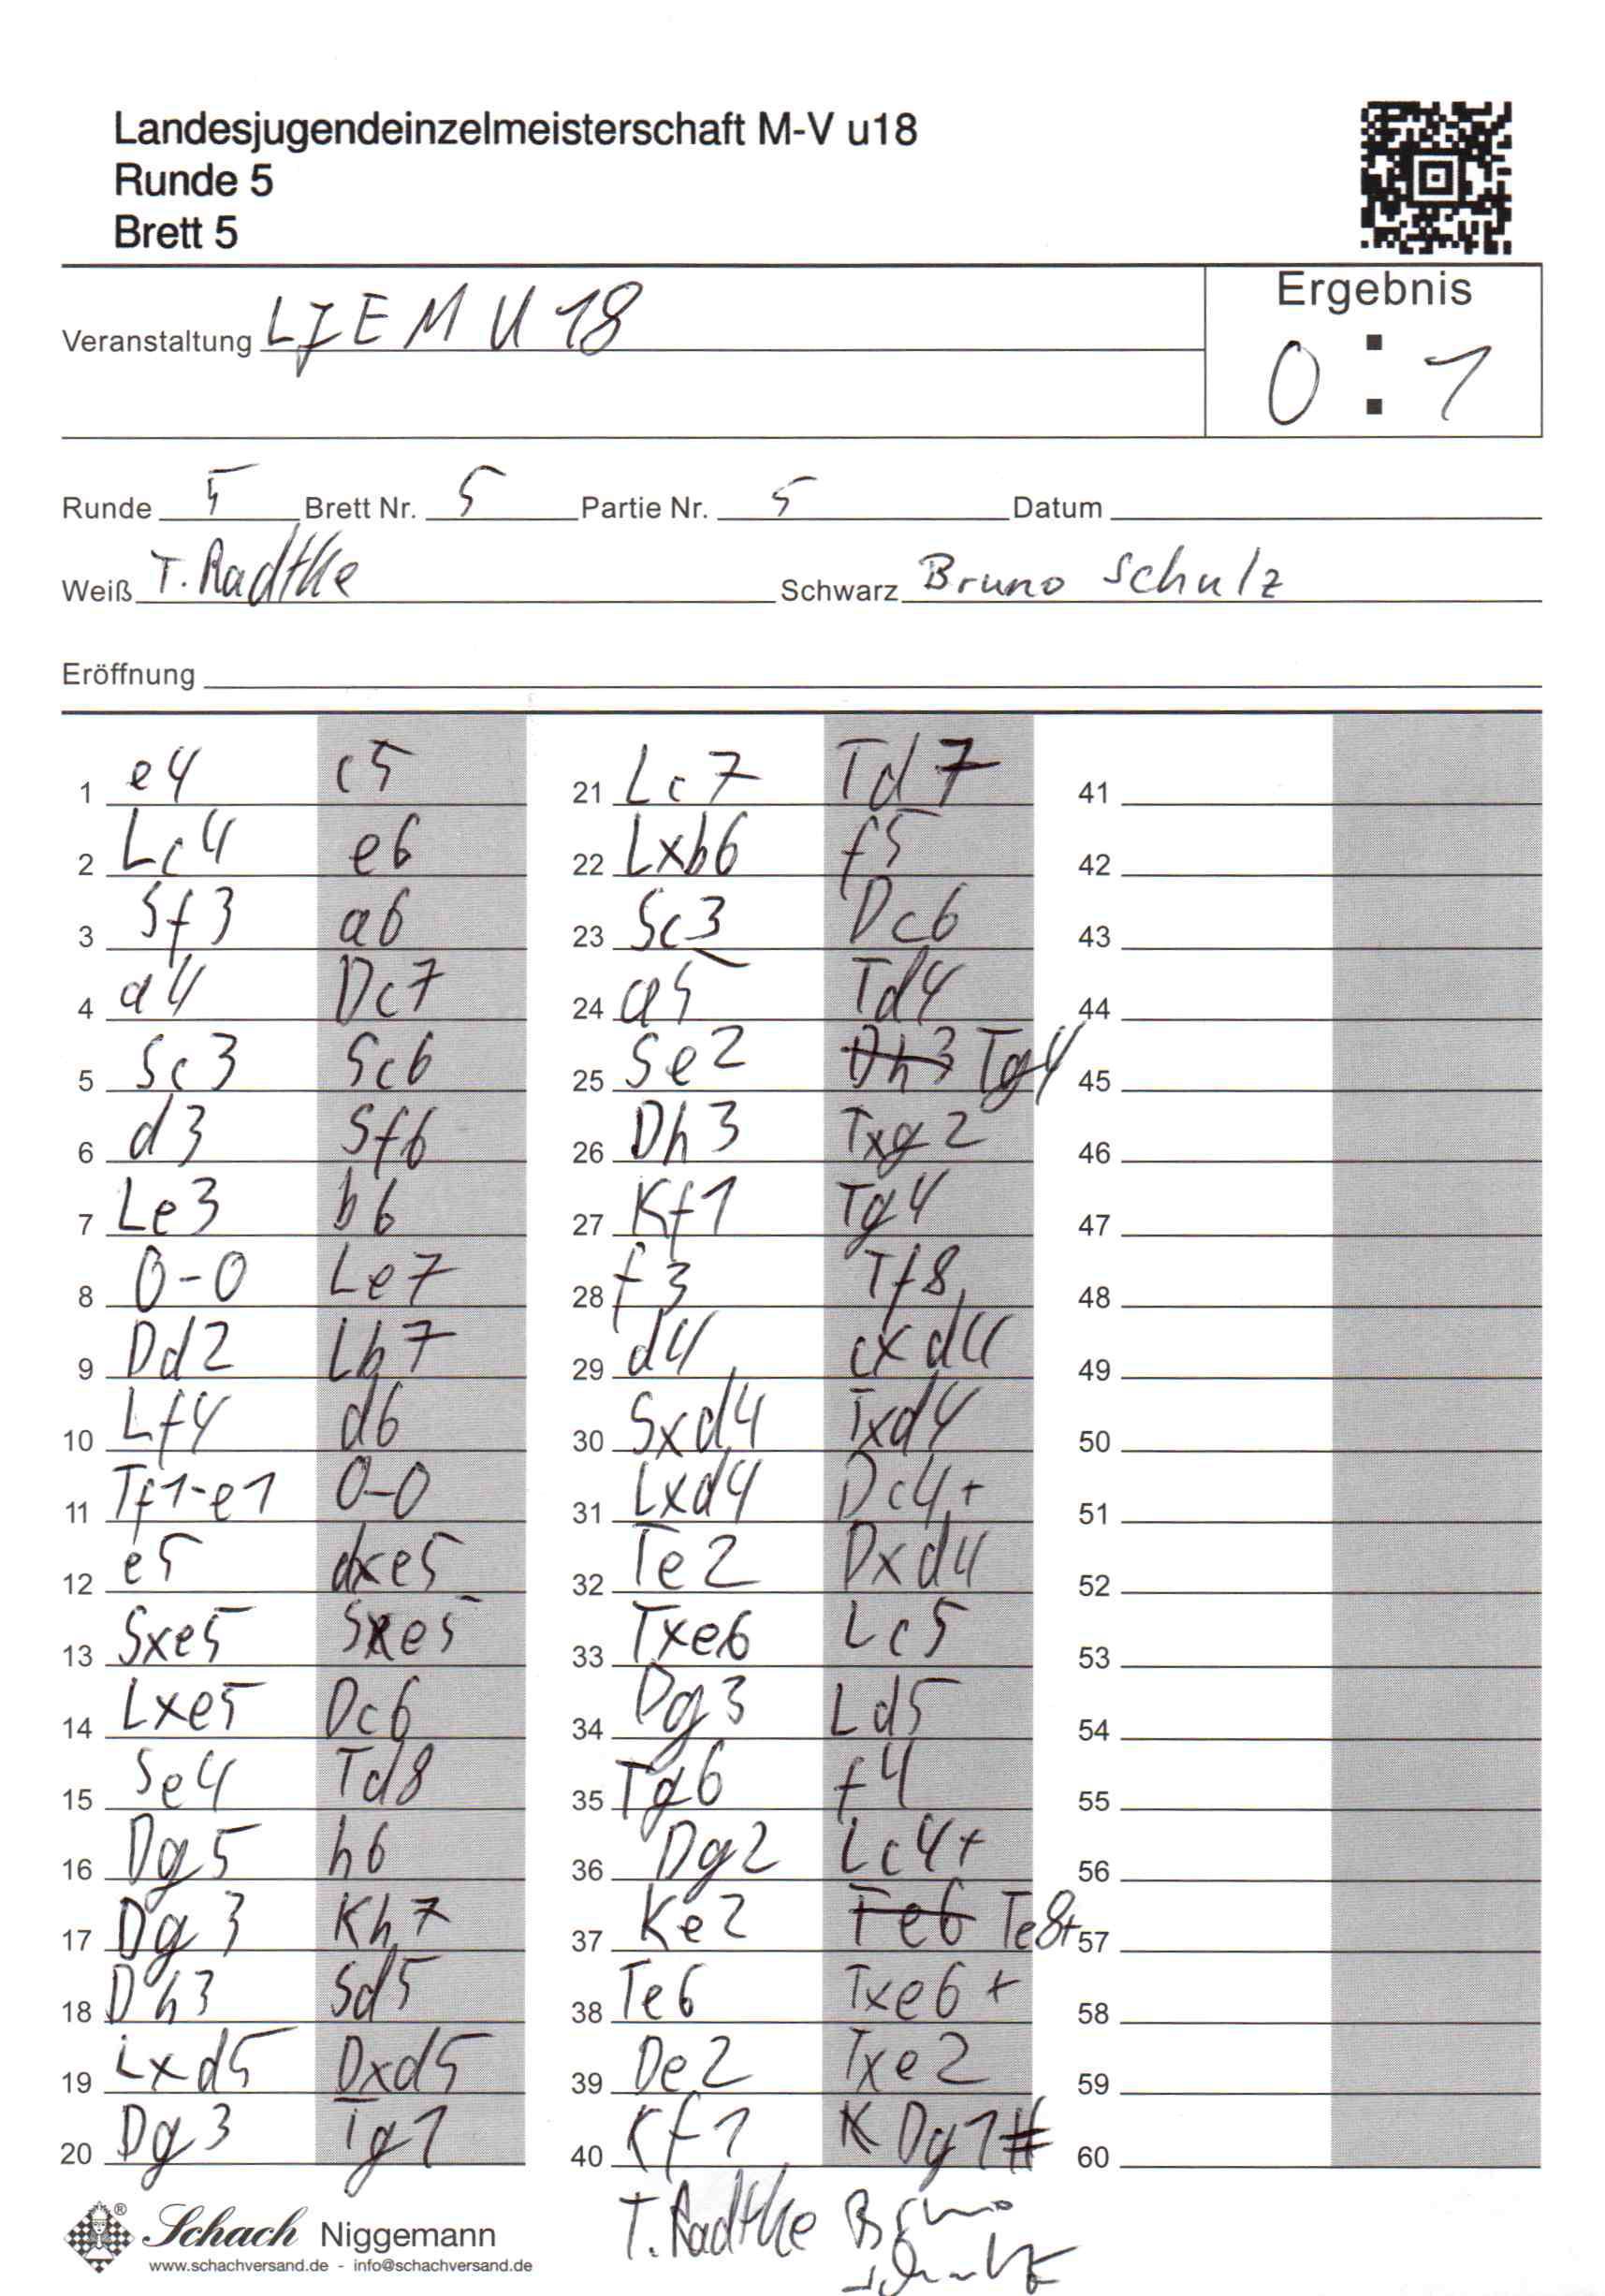 Landesjugendeinzelmeisterschaft M-V u18
Runde 5
Brett 5
Ergebnis
Veranstaltung LJEM U18
0 : 1
Runde 5 Brett Nr. 5 Partie Nr. 5 Datum
Weiß T. Radtke Schwarz Bruno Schulz
Eröffnung
1 e4 c5
2 Lc4 e6
3 Sf3 a6
4 a4 Dc7
5 Sc3 Sc6
6 d3 Sf6
7 Le3 b6
8 0-0 Le7
9 Dd2 Lb7
10 Lf4 d6
11 Tf1-e1 0-0
12 e5 dxe5
13 Sxe5 Sxe5
14 Lxe5 Dc6
15 Se4 Td8
16 Dg5 h6
17 Dg3 Kh7
18 Dh3 Sd5
19 Lxd5 Dxd5
20 Dg3 Tg1
21 Lc7 Td7
22 Lxb6 f5
23 Sc3 Dc6
24 a5 Td4
25 Se2 Dh3 Tg4
26 Dh3 Txg2
27 Kf1 Tg4
28 f3 Tf8
29 d4 cxd4
30 Sxd4 Txd4
31 Lxd4 Dc4+
32 Te2 Dxd4
33 Txe6 Lc5
34 Dg3 Ld5
35 Tg6 f4
36 Dg2 Lc4+
37 Ke2 Te6 Te8+
38 Te6 Txe6+
39 De2 Txe2
40 Kf1 K Dg1#
41
42
43
44
45
46
47
48
49
50
51
52
53
54
55
56
57
58
59
60
T. Radtke Bruno
Schulz
Schach Niggemann
www.schachversand.de - info@schachversand.de